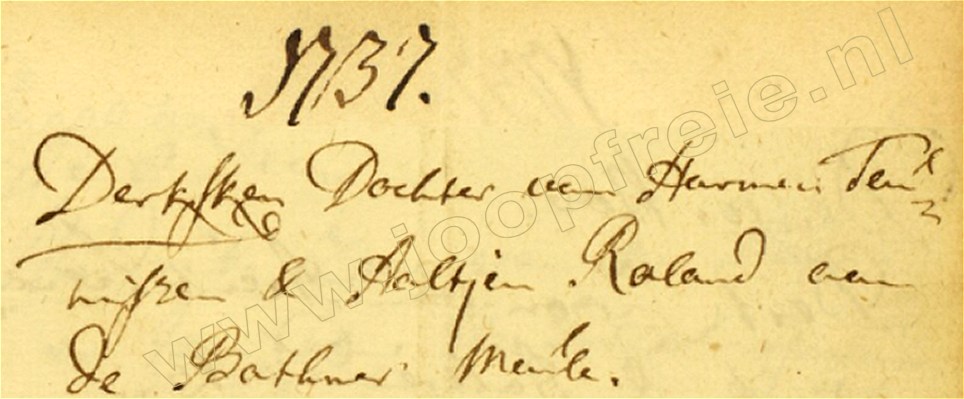 1737.
Derkjsken Dochter van Harmen Teu=
nissen & Aaltjen Roland aan
de Bathmer Meule.
www.joopfreie.nl